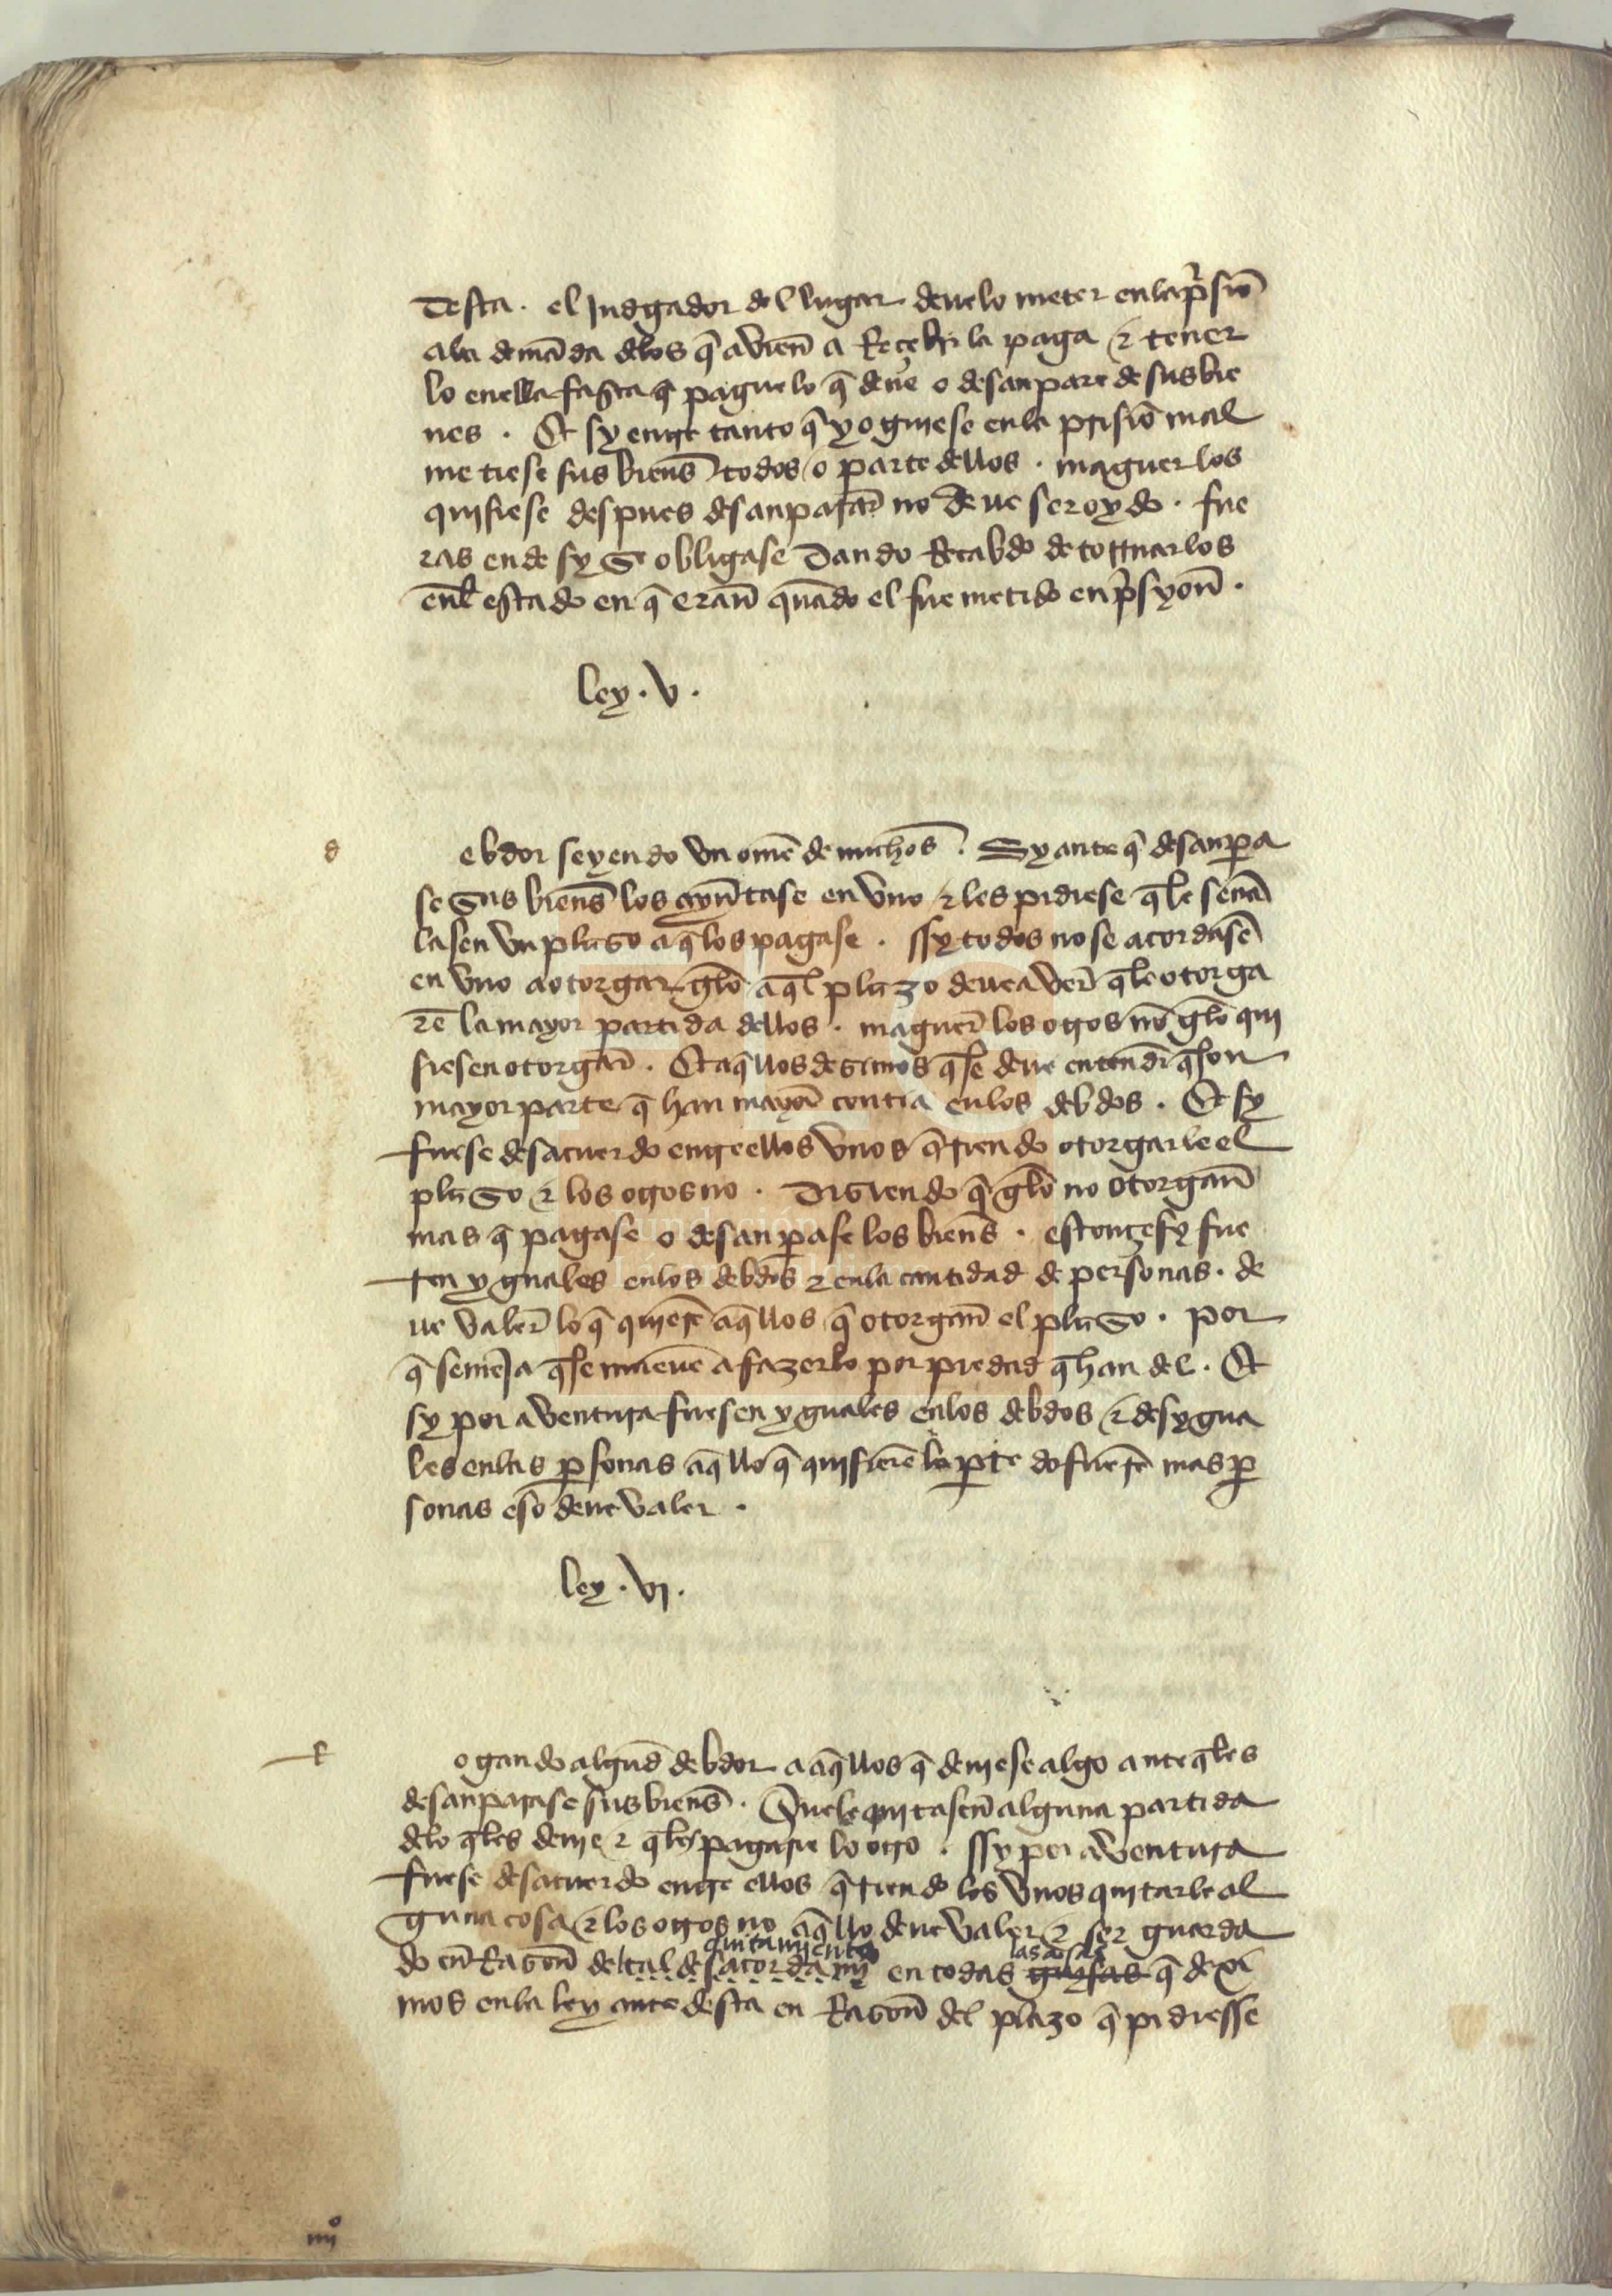 desta . el Judgador del lugar deuelo meter enla p̃siõ
ala demãda delos q̃ avieñ a Reçebir la paga & tener
lo enella fasta q̃ pague lo q̃ deue o desanpare de sus bie
nes . Et sy entre tanto q̃ yoguiese enla prisiõ mal
metiese sus bienẽs todos o parte dellos . maguer los
quisiese despues desanparar̃ no deue ser oydo . fue
ras ende sy se obligase dando Recabdo de tornarlos
enl̃ estado en q̃ erañ quãdo el fue metido en p̃syoñ .
ley . v .
d
ebdor seyendo vn omẽ de muchos . Sy ante q̃ desanpa
se sus bienẽs los ayũtase en vno & les pidiese q̃le señã
lasen vn plaso a q̃ los pagase . ssy todos no se acordasẽ
en vno a otorgar gelo aq̃l plazo deue aver̃ q̃le otorga
rẽ la mayor partida dellos . maguer̃ los otros nõ gelo qui
siesen otorgar̃ . Et aq̃llos desimos q̃se deue entender q̃ son
mayor parte q̃ han mayor̃ contia enlos debdos . Et sy
fuese desacuerdo entre ellos vnos q̃riendo otorgarle el
plaso & los otros no . disiendo q̃ gelo no otorgarĩ
mas q̃ pagase o desanpase los bienẽs . estonçe sy fue
ren yguales enlos debdos & enla cantidad de personas . de
ue valer̃ lo q̃ quierẽ aq̃llos q̃ otorgarĩ el plaso . por
q̃ semeja q̃se mueuẽ a fazerlo por piedad q̃ han del . Et
sy por aventura fuesen yguales enlos debdos & desygua
les enlas p̱sonas aq̃llo q̃ quisierẽ la p̱te do fuerẽ mas p̱
sonas eso deue valer .
ley . vj .
R
ogando algũd debdor a aq̃llos q̃ deuiese algo ante q̃les
desanparase sus bienẽs . Que le quitaseñ alguna partida
delo q̃les deuie & q̃les pagarie lo otro . ssy por aventura
fuese desacuerdo entre ellos q̃riendo los vnos quitarle al
guna cosa & los otros no aq̃llo deue valer & ser guarda
quitamiento las cosas
do eñ Rasoñ de tal desacordamiº en todas guysas q̃ dexi
mos enla ley ante desta en Rasoñ del plazo q̃ pidiesse
iiijº